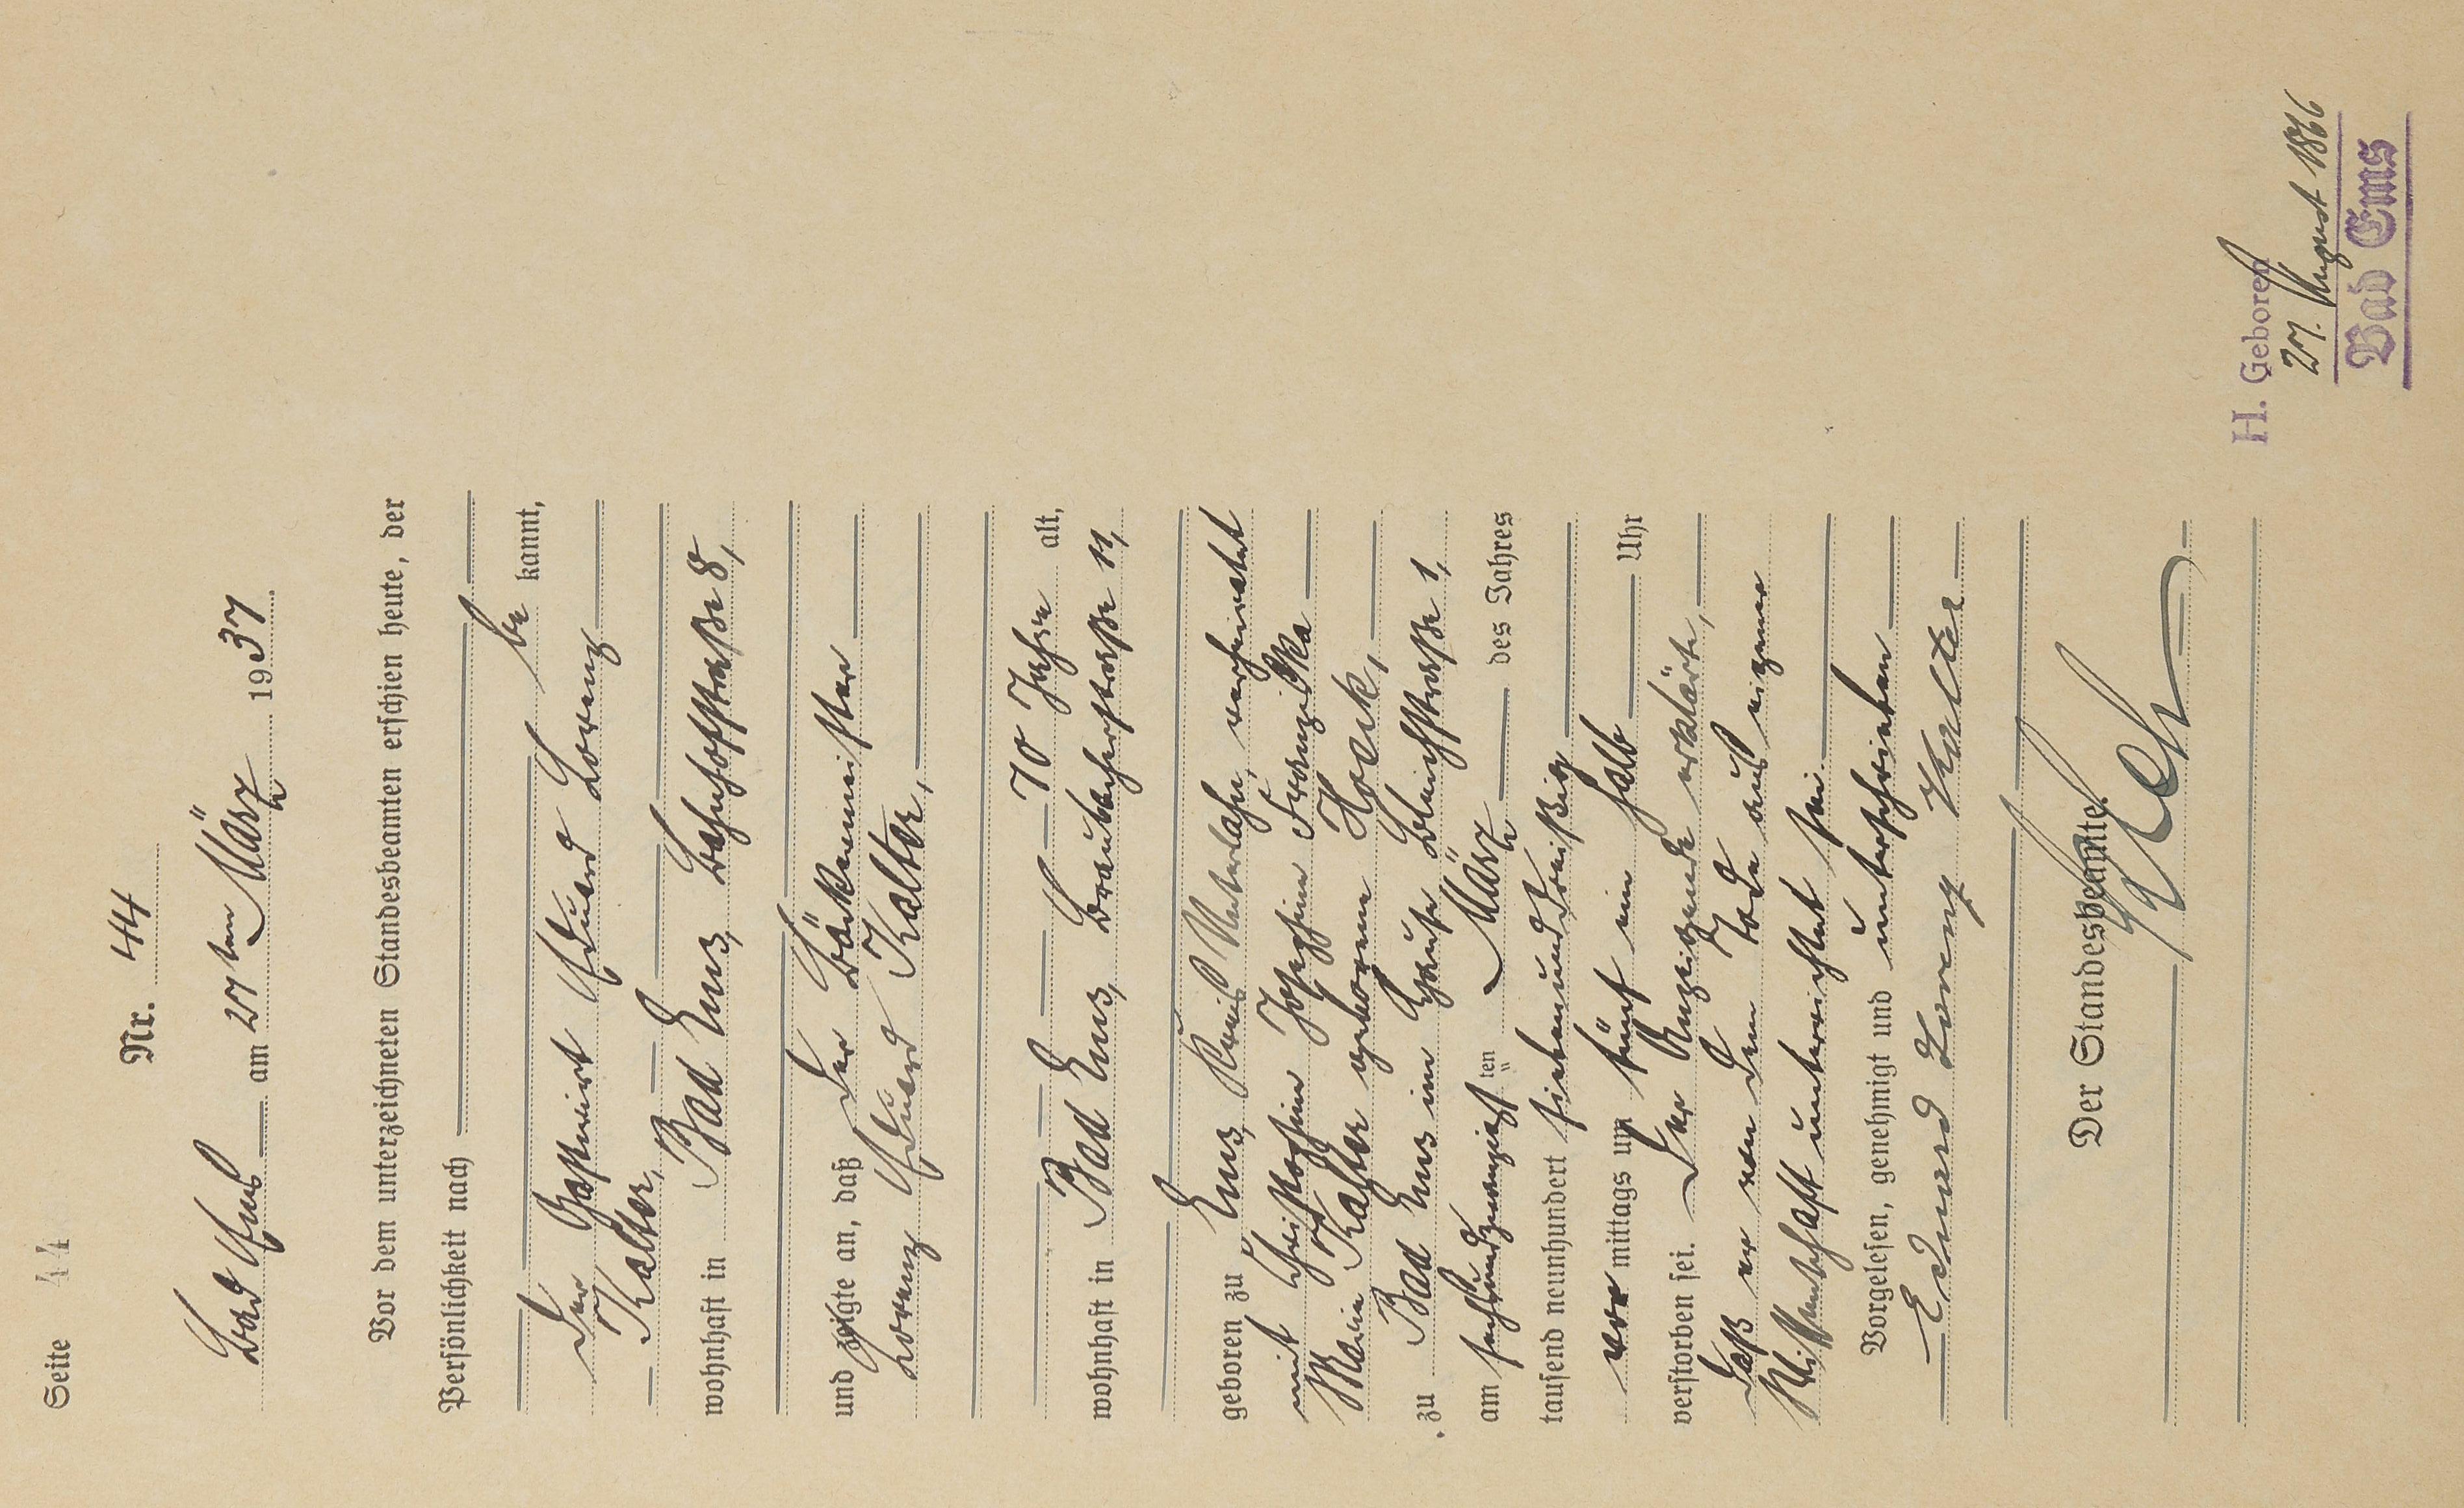 Seite 44
Nr. 44
Bad Ems am 27ten März 1937
Vor dem unterzeichneten Standesbeamten erschien heute, der
Persönlichkeit nach
be kannt,
der Gastwirt Eduard Lorenz
Kalter,
wohnhaft in Bad Ems, Bahnhofstraße 8,
und zeigte an, daß der Bäckermeister
Lorenz Eduard Kalter,
70 Jahre alt,
wohnhaft in Bad Ems, Braubacherstraße 11,
geboren zu Ems, Kreis Unterlahn, verheiratet
mit Christosine Josephine Franziska
Maria Kalter geborene Hock,
zu Bad Ems im Hause Bleichstraße 1,
am sechsundzwanzigsten März des Jahres
tausend neunhundert siebenunddreißig
vor mittags um fünf ein halb Uhr
verstorben sei. Der Anzeigende erklärte,
daß er von dem Tode aus eigener
Wissenschaft unterrichtet sei.
Vorgelesen, genehmigt und unterschrieben
Eduard Lorenz Kalter
Der Standesbeamte.
H. Geboren
27. August 1866
Bad Ems